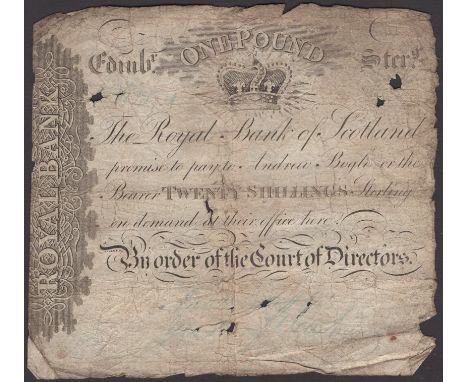 ONE POUND
Edinbr. Sterg.
ROYAL BANK
The Royal Bank of Scotland
promise to pay to Andrew Bogle or the
Bearer TWENTY SHILLINGS Sterling
on demand at their office here
By order of the Court of Directors.